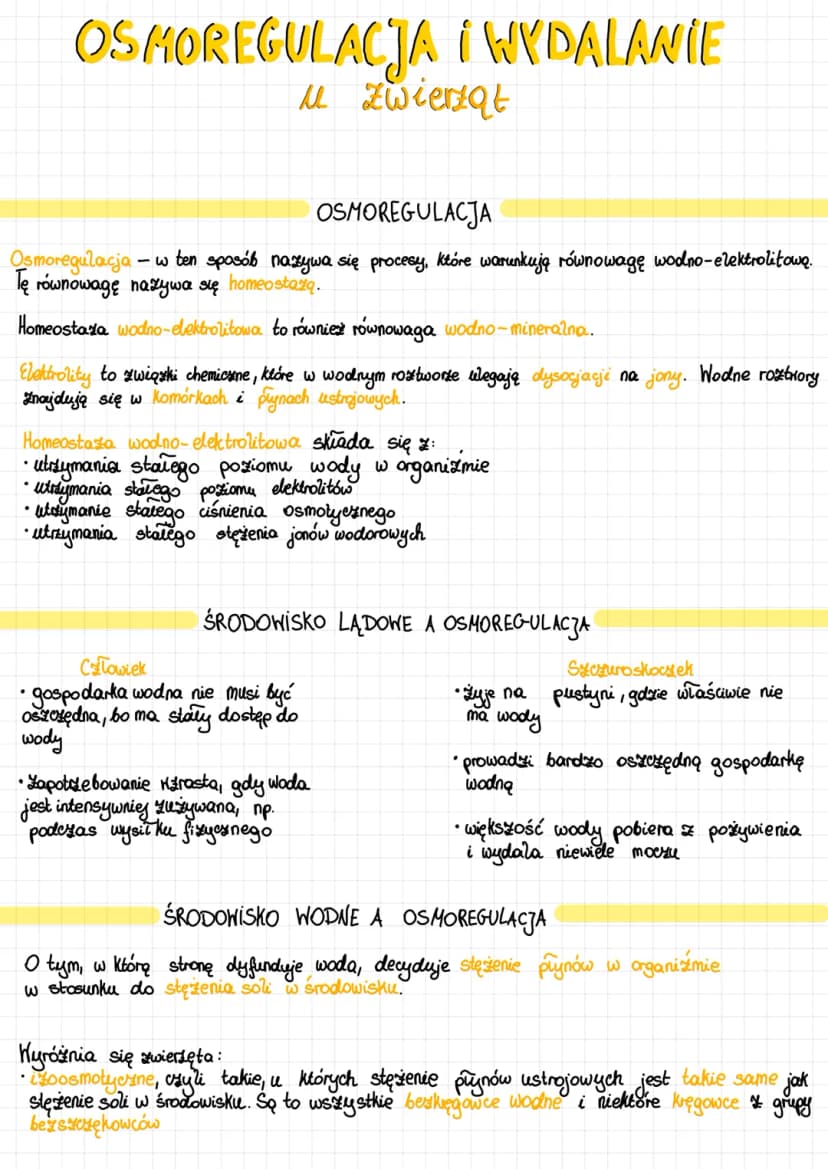 OSMOREGULACJA i WYDALANIE
u zwierząt
OSMOREGULACJA
Osmoregulacja – w ten sposób nazywa się procesy, które warunkują równowagę wodno-elektrolitową.
Tę równowagę nazywa się homeostazą.
Homeostaza wodno-elektrolitowa to również równowaga wodno-mineralna.
Elektrolity to związki chemiczne, które w wodnym roztworze ulegają dysocjacji na jony. Wodne roztwory
znajdują się w komórkach i płynach ustrojowych.
Homeostaza wodno-elektrolitowa składa się z:
• utrzymania stałego poziomu wody w organizmie
• utrzymania stałego poziomu elektrolitów
• utrzymanie stałego ciśnienia osmotycznego
• utrzymania stałego stężenia jonów wodorowych
ŚRODOWISKO LĄDOWE A OSMOREGULACJA
Człowiek
• gospodarka wodna nie musi być
oszczędna, bo ma stały dostęp do
wody
• zapotrzebowanie wzrasta, gdy woda
jest intensywniej zużywana, np.
podczas wysiłku fizycznego
Szczuroskoczek
• żyje na pustyni, gdzie właściwie nie
ma wody
• prowadzi bardzo oszczędną gospodarkę
wodną
• większość wody pobiera z pożywienia
i wydala niewiele moczu
ŚRODOWISKO WODNE A OSMOREGULACJA
O tym, w którą stronę dyfunduje woda, decyduje stężenie płynów w organizmie
w stosunku do stężenia soli w środowisku.
Wyróżnia się zwierzęta:
• izoosmotyczne, czyli takie, u których stężenie płynów ustrojowych jest takie same jak
stężenie soli w środowisku. Są to wszystkie bezkręgowce wodne i niektóre kręgowce z grupy
bezszczękowców